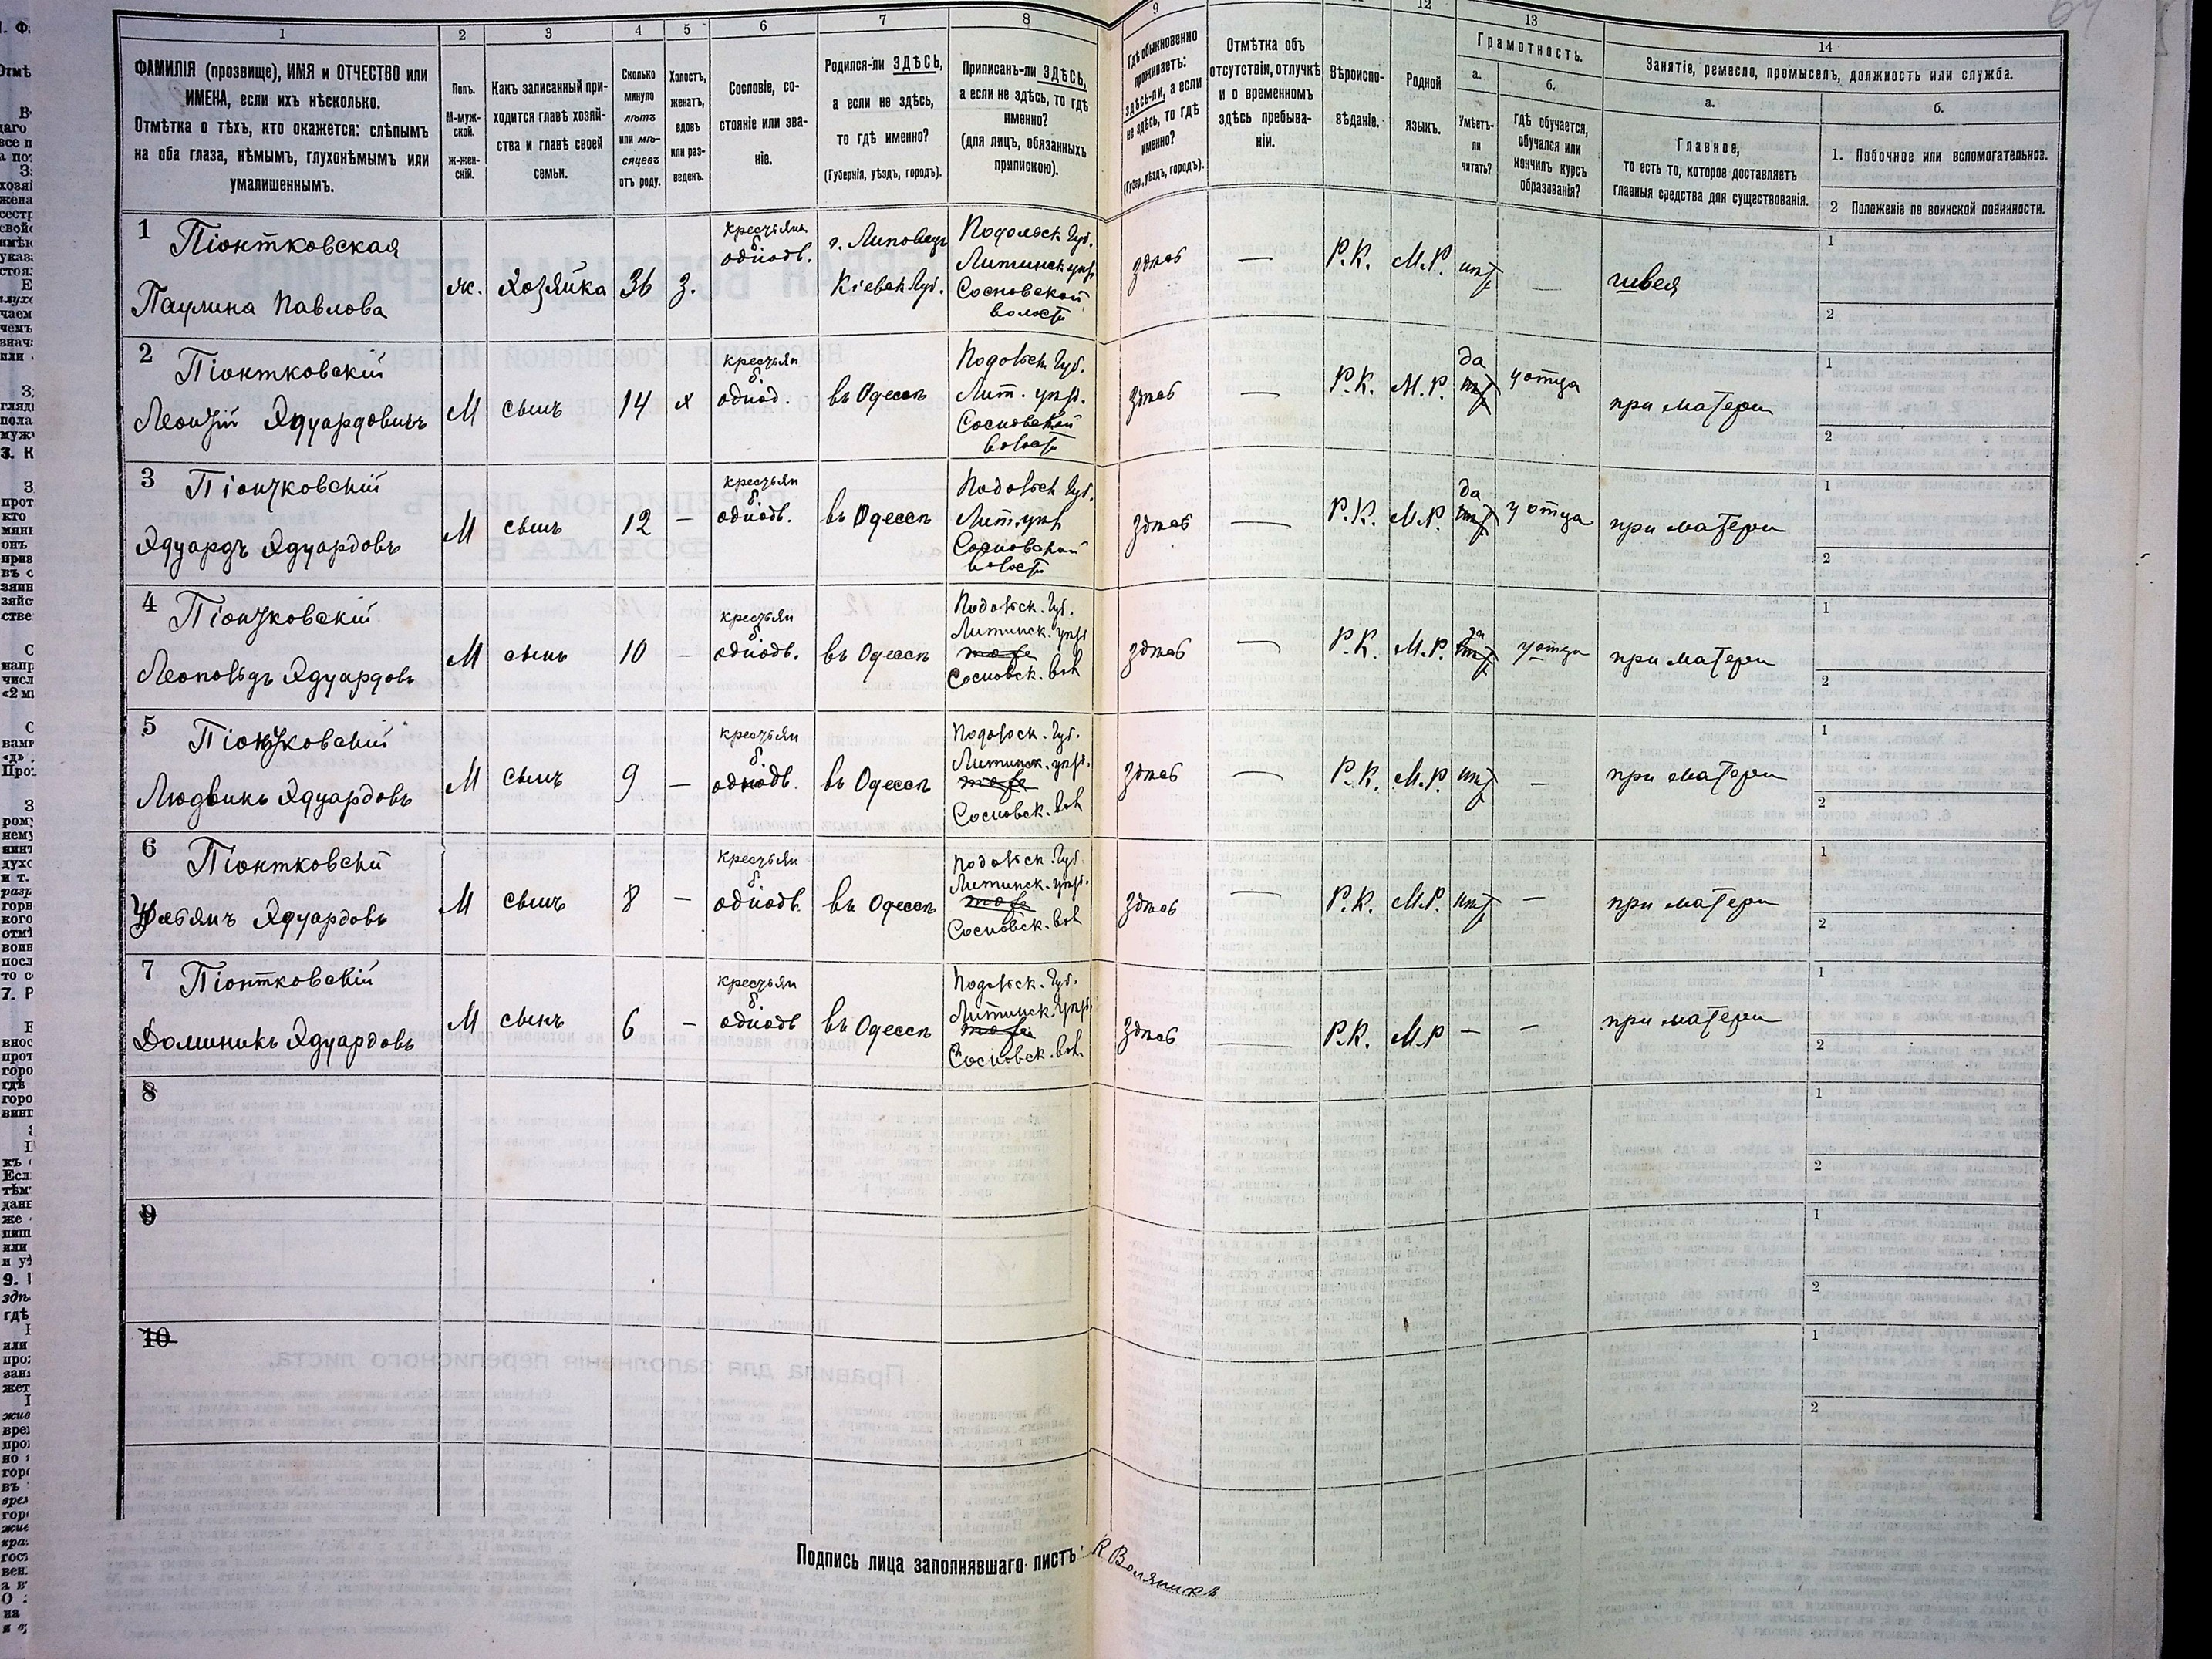 1 2 3 4 5 6 7 8 9 12 13 14
ФАМИЛІЯ (прозвище), ИМЯ и ОТЧЕСТВО или
ИМЕНА, если ихъ нѣсколько.
Отмѣтка о тѣхъ, кто окажется: слѣпымъ
на оба глаза, нѣмымъ, глухонѣмымъ или
умалишеннымъ.
Полъ.
М-муж-
ской.
ж-жен-
скій.
Какъ записанный при-
ходится главѣ хозяй-
ства и главѣ своей
семьи.
Сколько
минуло
лѣтъ
или мѣ-
сяцевъ
отъ роду.
Холостъ,
женатъ,
вдовъ
или раз-
веденъ.
Сословіе, со-
стояніе или зва-
ніе.
Родился-ли ЗДѢСЬ,
а если не здѣсь,
то гдѣ именно?
(Губернія, уѣздъ, городъ).
Приписанъ-ли ЗДѢСЬ,
а если не здѣсь, то гдѣ
именно?
(для лицъ, обязанныхъ
припискою).
Гдѣ обыкновенно
проживаетъ:
здѣсь-ли, а если
не здѣсь, то гдѣ
именно?
(Губер., уѣздъ, городъ).
Отмѣтка объ
отсутствіи, отлучкѣ
и о временномъ
здѣсь пребыва-
ніи.
Вѣроиспо-
вѣданіе.
Родной
языкъ.
Грамотность.
а.
Умѣетъ-
ли
читать?
б.
гдѣ обучается,
обучался или
кончилъ курсъ
образованія?
Занятія, ремесло, промыселъ, должность или служба.
а.
Главное,
то есть то, которое доставляетъ
главныя средства для существованія.
б.
1. Побочное или вспомогательное.
2 Положеніе по воинской повинности.
1 Піонтковская
Паулина Павлова
ж. Хозяйка 36 з.
крестьянка
однодв.
г. Липовецъ
Кіевск Губ.
Подольск Губ.
Литинск уѣзд
Сосновской
волости
здѣсь — Р.К. М.Р. нѣт — швея
1
2
2 Піонтковскій
Леонтій Эдуардовичъ
М сынъ 14 х
крестьян
б.
однод.
въ Одессѣ
Подольск Губ.
Лит. уѣзд.
Сосновской
волости
здѣсь — Р.К. М.Р. да нѣт у отца при матери
1
2
3 Піонтковскій
Эдуардъ Эдуардовъ
М сынъ 12 —
крестьян
б.
однодв.
въ Одессѣ
Подольск Губ.
Лит. уѣзд
Сосновской
волости
здѣсь — Р.К. М.Р. да нѣт у отца при матери
1
2
4 Піонтковскій
Леопольдъ Эдуардовъ
М сынъ 10 —
крестьян
б.
однодв.
въ Одессѣ
Подольск. Губ.
Литинск. уѣзд
тоже
Сосновск. вол
здѣсь — Р.К. М.Р. да нѣт у отца при матери
1
2
5 Піонтковскій
Людвикъ Эдуардовъ
М сынъ 9 —
крестьян
б.
однодв.
въ Одессѣ
Подольск. Губ.
Литинск. уѣзд.
тоже
Сосновск. вол
здѣсь — Р.К. М.Р нѣт — при матери
1
2
6 Піонтковскій
Фабянъ Эдуардовъ
М сынъ 8 —
крестьян
б.
однодв.
въ Одессѣ
Подольск. Губ.
Литинск. уѣзд.
тоже
Сосновск. вол
здѣсь — Р.К. М.Р. нѣт — при матери
1
2
7 Піонтковскій
Доминикъ Эдуардовъ
М сынъ 6 —
крестьян
б.
однодв
въ Одессѣ
Подольск. Губ.
Литинск. уѣзд.
тоже
Сосновск. вол.
здѣсь — Р.К. М.Р — — при матери
1
2
8
1
2
9
1
2
10
1
2
Подпись лица заполнявшаго листъ: